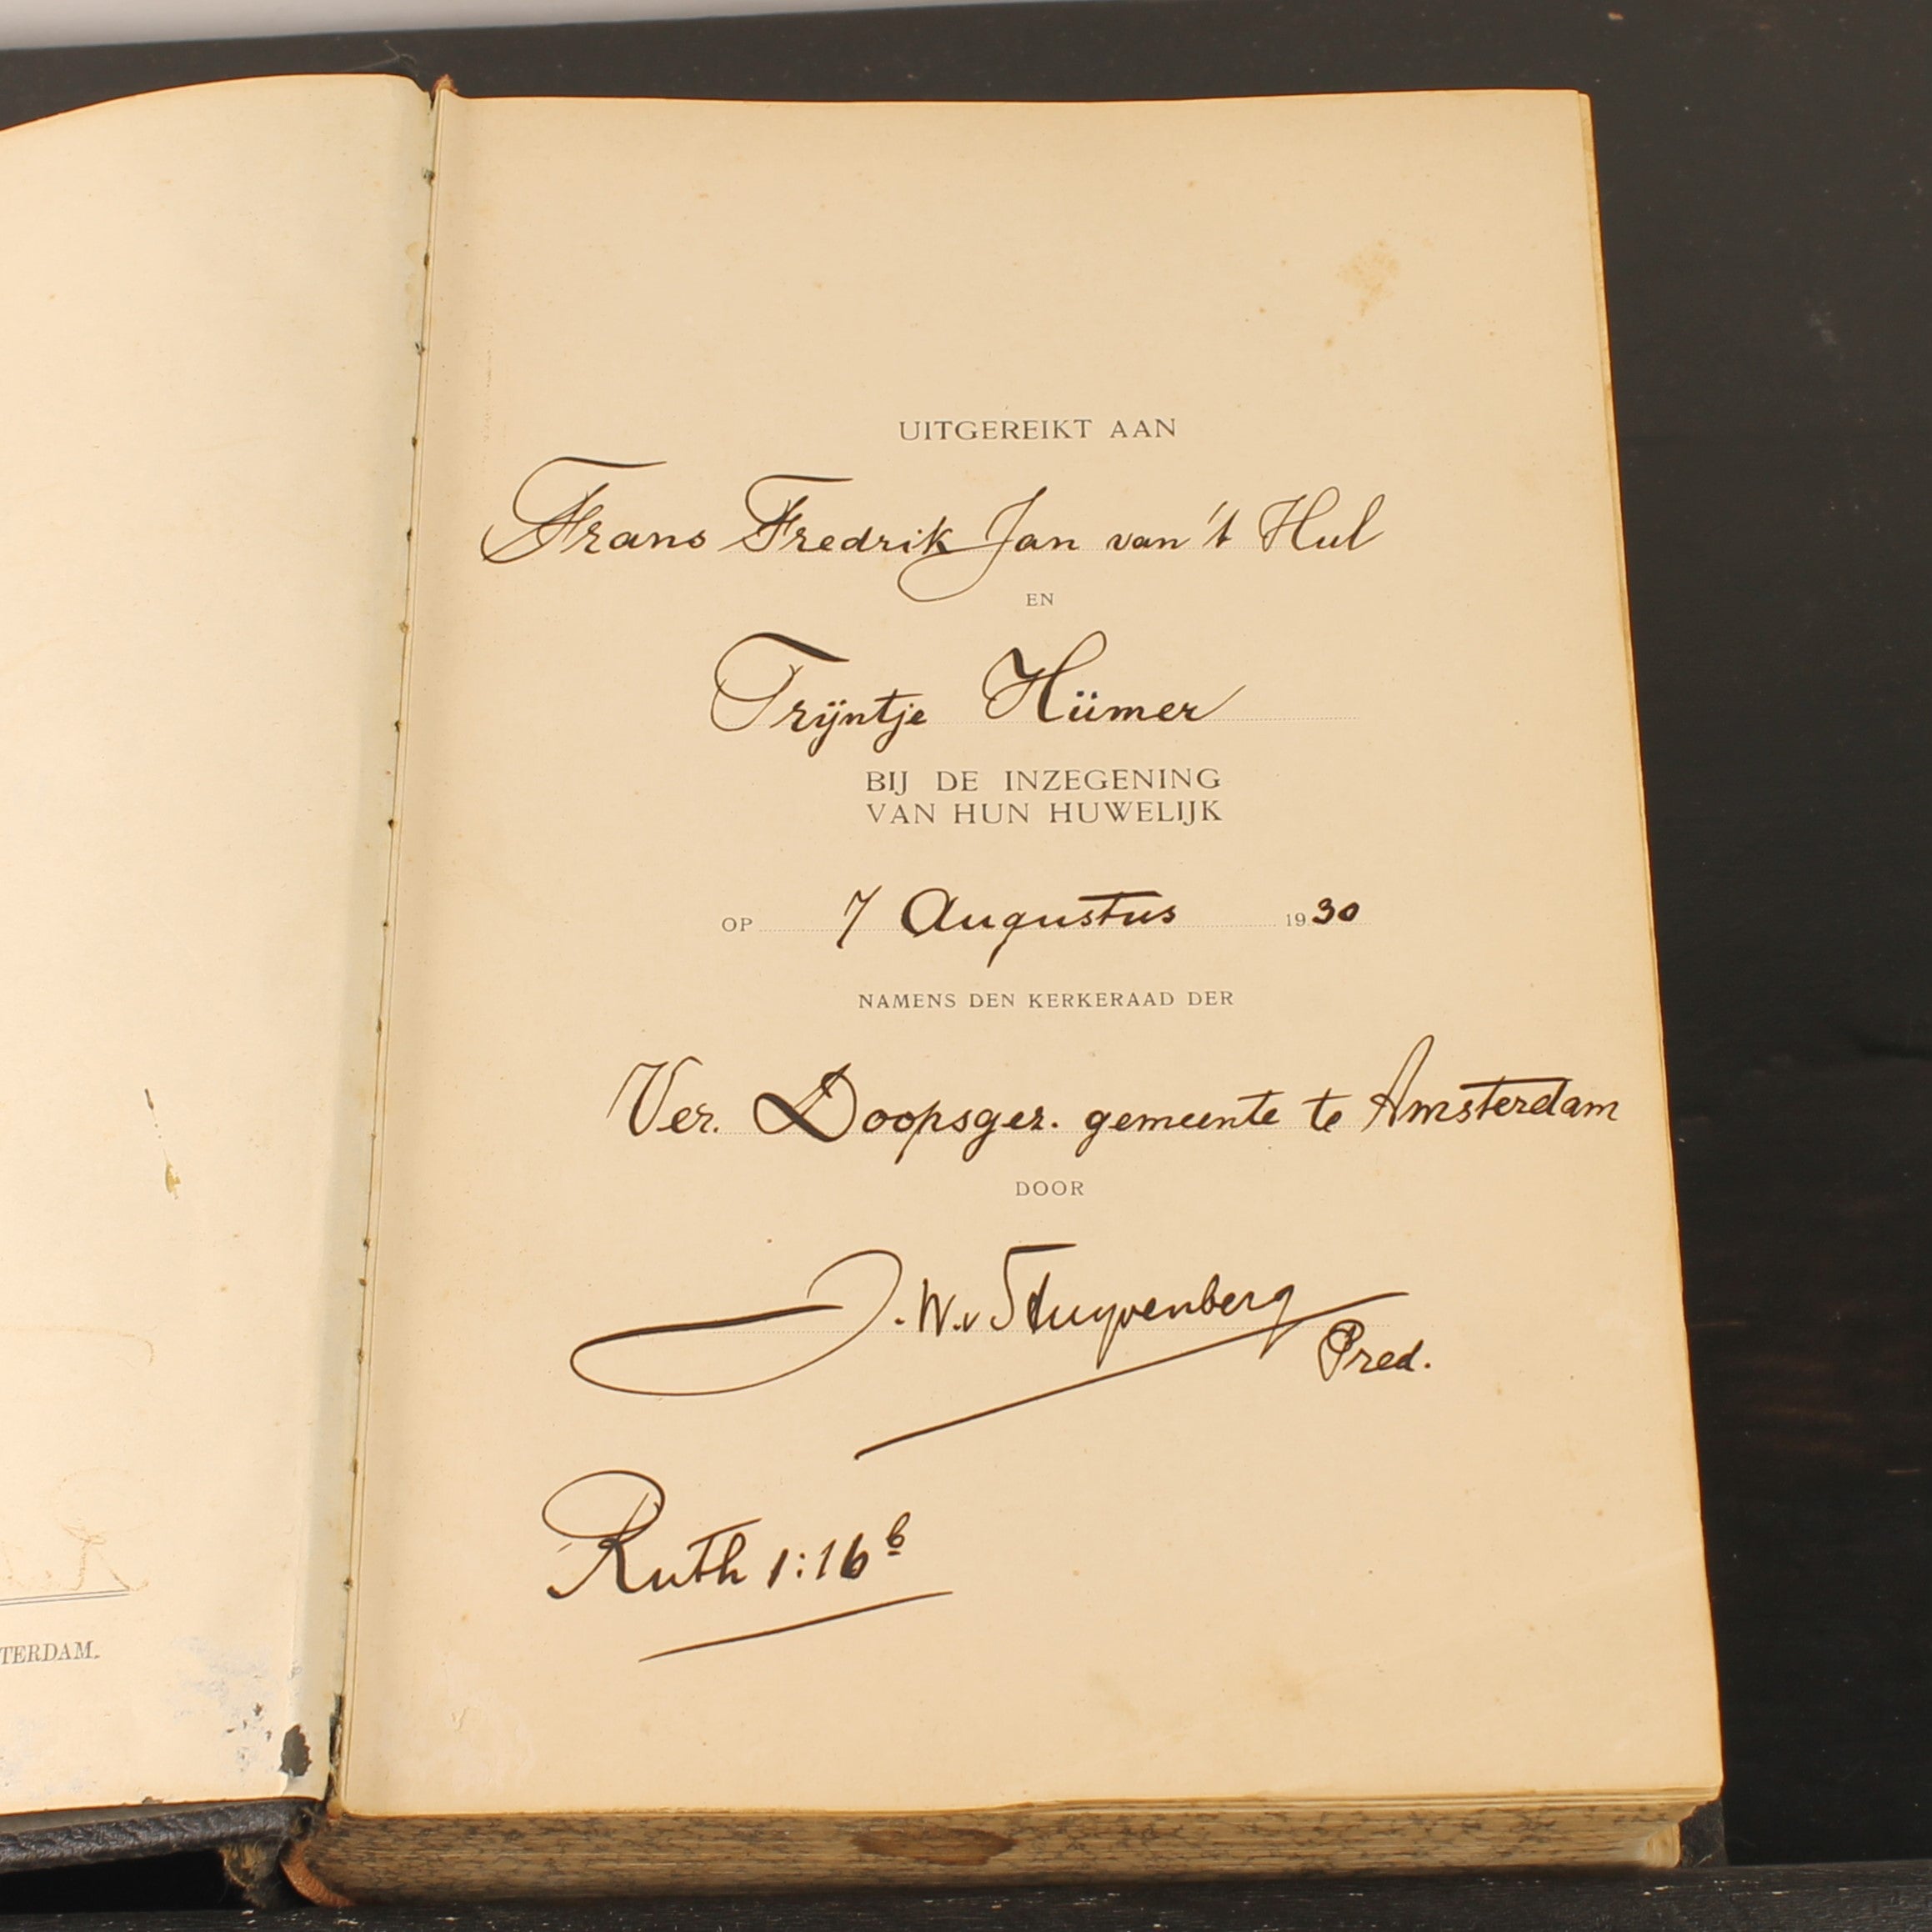 UITGEREIKT AAN
Frans Fredrik Jan van 't Hul
EN
Trijntje Hümer
BIJ DE INZEGENING
VAN HUN HUWELIJK
OP 7 Augustus 1930
NAMENS DEN KERKERAAD DER
Ver. Doopsgez. gemeente te Amsterdam
DOOR
J. W. v Stuyvenberg
Pred.
Ruth 1:16b
TERDAM.